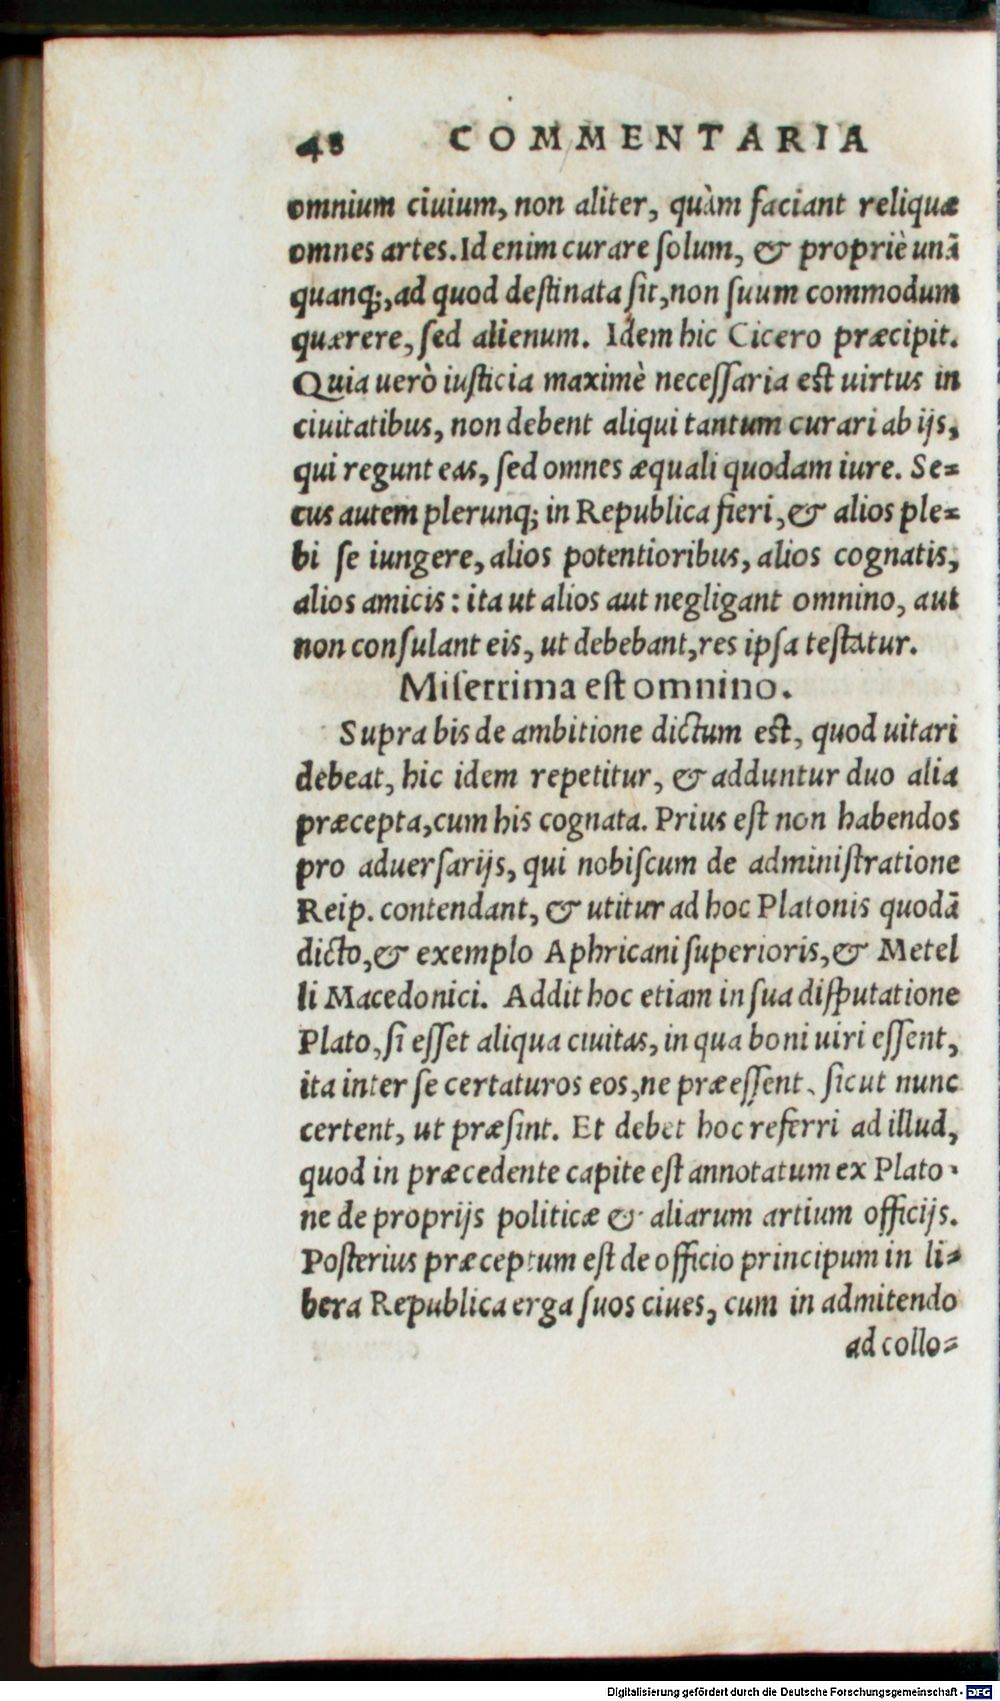 48 COMMENTARIA
omnium ciuium, non aliter, quàm faciant reliquæ
omnes artes. Id enim curare ſolum, & propriè unā
quanq;, ad quod deſtinata ſit, non ſuum commodum
quærere, ſed alienum. Idem hic Cicero præcipit.
Quia uerò iuſticia maximè neceſſaria eſt uirtus in
ciuitatibus, non debent aliqui tantum curari ab ijs,
qui regunt eas, ſed omnes æquali quodam iure. Se=
cus autem plerunq; in Republica fieri, & alios ple=
bi ſe iungere, alios potentioribus, alios cognatis,
alios amicis: ita ut alios aut negligant omnino, aut
non conſulant eis, ut debebant, res ipſa teſtatur.
Miſerrima eſt omnino.
Supra bis de ambitione dictum eſt, quod uitari
debeat, hic idem repetitur, & adduntur duo alia
præcepta, cum his cognata. Prius eſt non habendos
pro aduerſarijs, qui nobiſcum de adminiſtratione
Reip. contendant, & utitur ad hoc Platonis quodā
dicto, & exemplo Aphricani ſuperioris, & Metel
li Macedonici. Addit hoc etiam in ſua diſputatione
Plato, ſi eſſet aliqua ciuitas, in qua boni uiri eſſent,
ita inter ſe certaturos eos, ne præeſſent, ſicut nunc
certent, ut præſint. Et debet hoc referri ad illud,
quod in præcedente capite eſt annotatum ex Plato-
ne de proprijs politicæ & aliarum artium officijs.
Poſterius præceptum eſt de officio principum in li=
bera Republica erga ſuos ciues, cum in admitendo
ad collo=
Digitalisierung gefördert durch die Deutsche Forschungsgemeinschaft - DFG